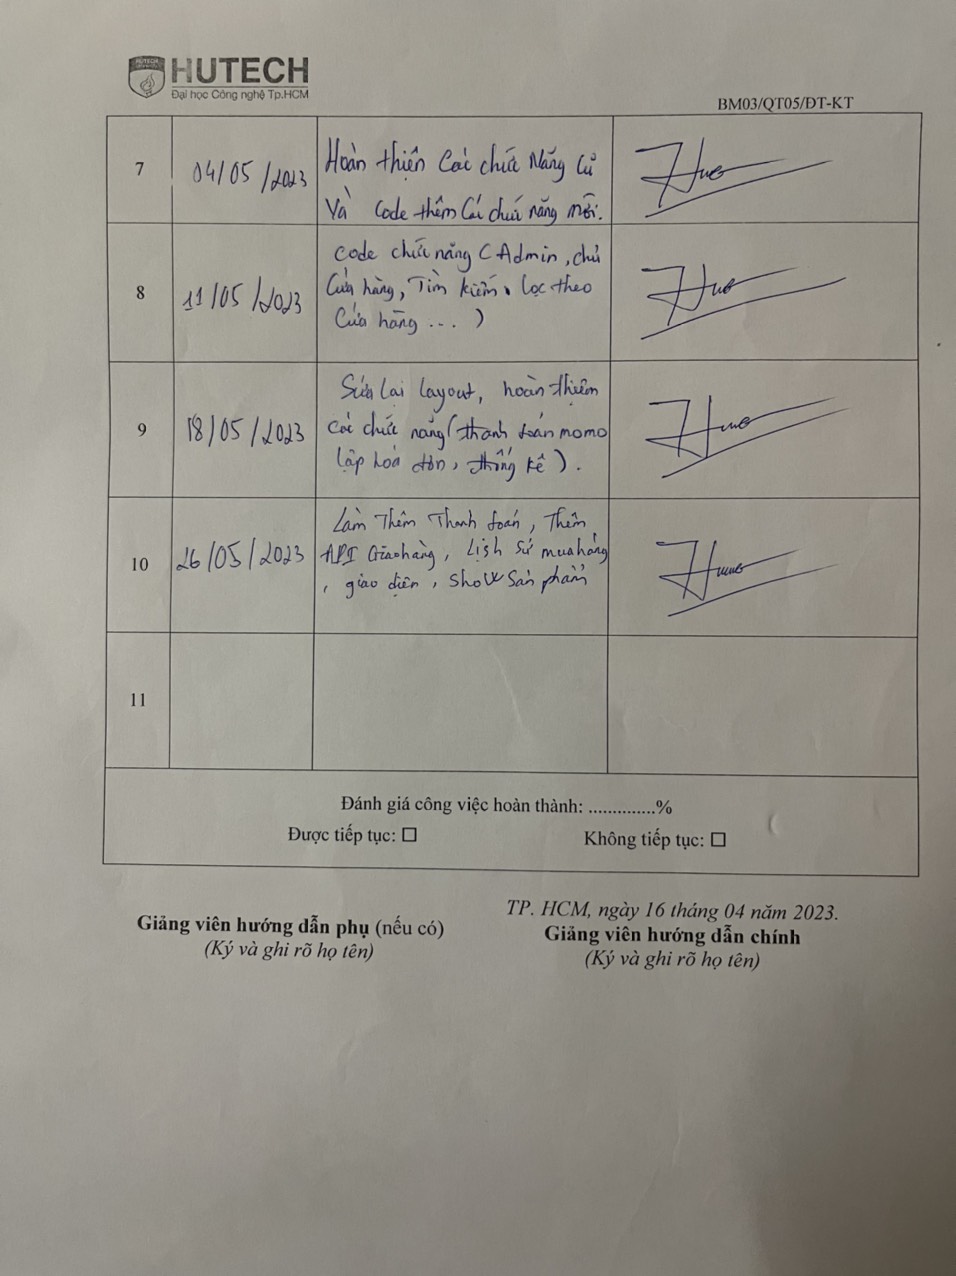 HUTECH
HUTECH
Đại học Công nghệ Tp.HCM
BM03/QT05/ĐT-KT
7
04/05/2023
Hoàn thiện Các chức Năng Cũ
Và Code thêm Các chức năng mới.
8
11/05/2023
Code chức năng (Admin, chủ
Cửa hàng, Tìm kiếm, lọc theo
Cửa hàng ... )
9
18/05/2023
Sửa lại layout, hoàn thiện
các chức năng (thanh toán momo
lập hoá đơn, thống kê).
10
26/05/2023
Làm Thêm Thanh toán, Thêm
API Giao hàng, Lịch sử mua hàng
, giao diện, show sản phẩm
11
Đánh giá công việc hoàn thành: ..............%
Được tiếp tục: ☐
Không tiếp tục: ☐
TP. HCM, ngày 16 tháng 04 năm 2023.
Giảng viên hướng dẫn phụ (nếu có)
Giảng viên hướng dẫn chính
(Ký và ghi rõ họ tên)
(Ký và ghi rõ họ tên)